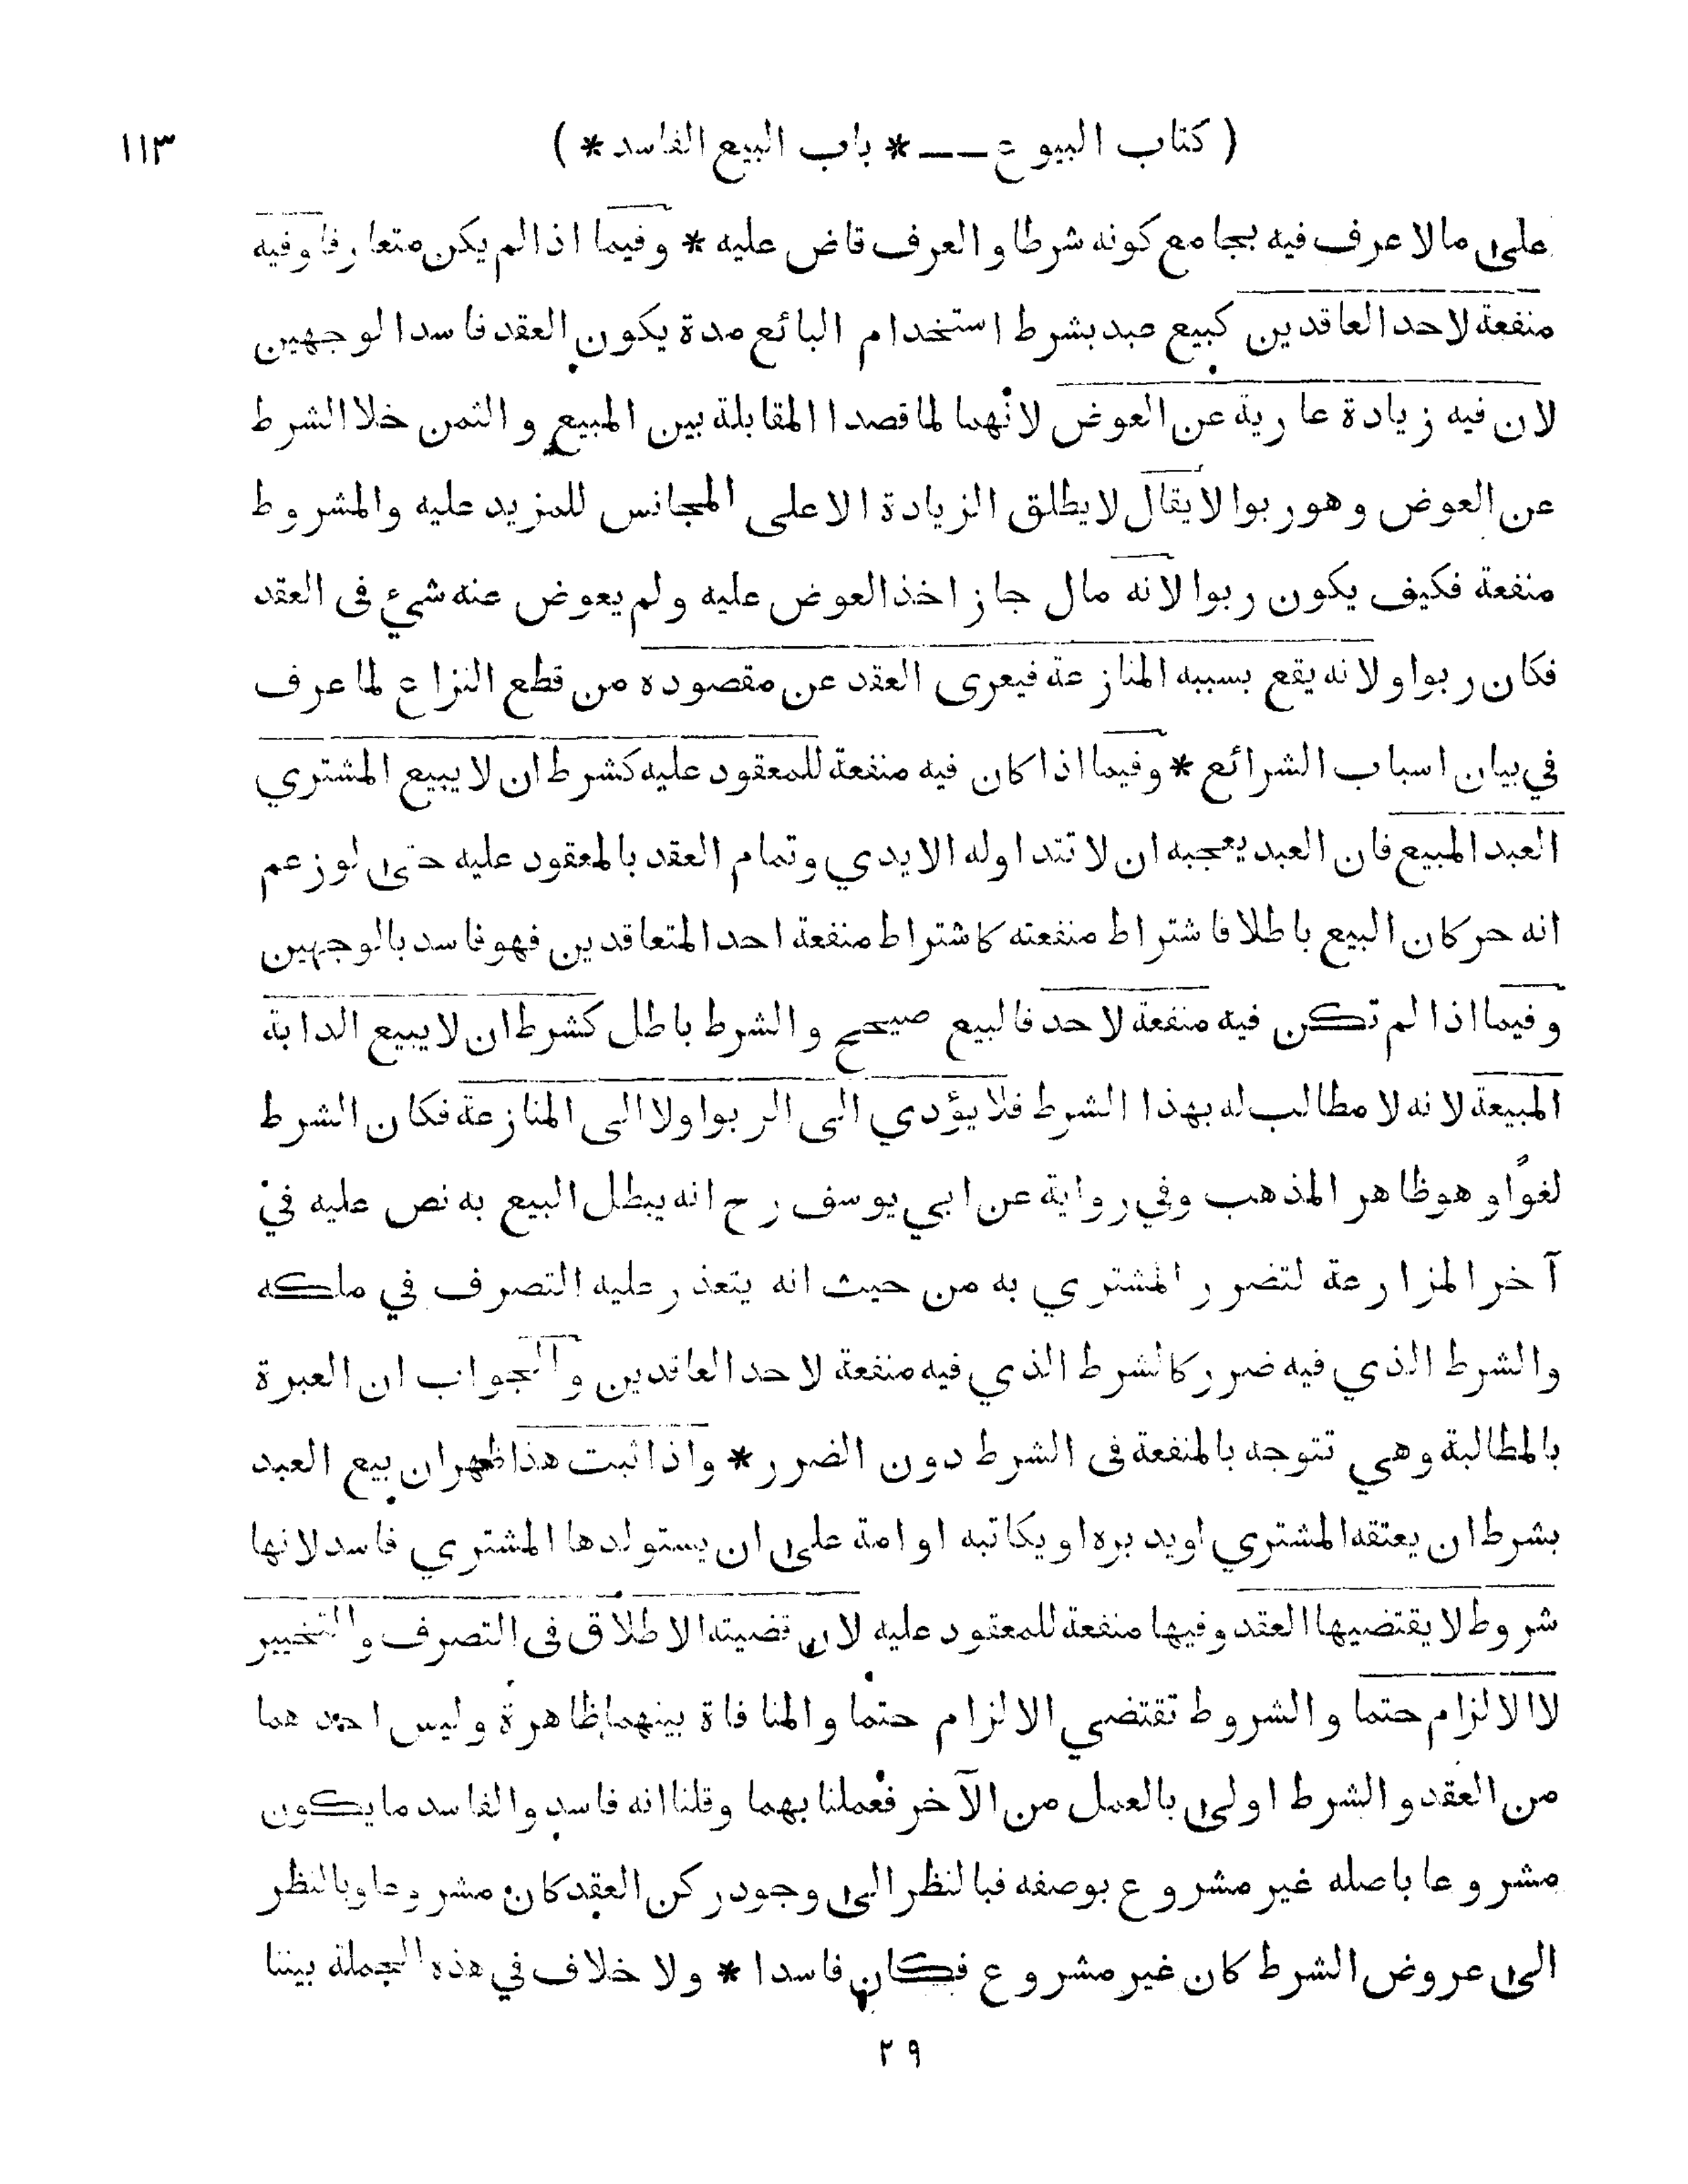 ( كتاب البيوع ــ ــ * باب البيع الفاسد * ) ١١٣
على ما لا عرف فيه بجامع كونه شرطا والعرف قاض عليه * وفيما اذا لم يكن متعارفا وفيه
منفعة لاحد العاقدين كبيع عبد بشرط استخدام البائع مدة يكون العقد فاسدا لوجهين
لان فيه زيادة عارية عن العوض لانهما لما قصدا المقابلة بين المبيع والثمن خلا الشرط
عن العوض وهو ربوا لا يقال لا يطلق الزيادة الا على المجانس للمزيد عليه والمشروط
منفعة فكيف يكون ربوا لانه مال جاز اخذ العوض عليه ولم يعوض عنه شيء فى العقد
فكان ربوا ولانه يقع بسببه المنازعة فيعرى العقد عن مقصوده من قطع النزاع لما عرف
في بيان اسباب الشرائع * وفيما اذا كان فيه منفعة للمعقود عليه كشرط ان لا يبيع المشتري
العبد المبيع فان العبد يعجبه ان لا تتداوله الايدي وتمام العقد بالمعقود عليه حتى لو زعم
انه حر كان البيع باطلا فاشتراط منفعته كاشتراط منفعة احد المتعاقدين فهو فاسد بالوجهين
وفيما اذا لم تكن فيه منفعة لاحد فالبيع صحيح والشرط باطل كشرط ان لا يبيع الدابة
المبيعة لانه لا مطالب له بهذا الشرط فلا يؤدي الى الربوا ولا الى المنازعة فكان الشرط
لغوًا وهو ظاهر المذهب وفي رواية عن ابي يوسف رح انه يبطل البيع به نص عليه في
آخر المزارعة لتضرر المشتري به من حيث انه يتعذر عليه التصرف في ملكه
والشرط الذي فيه ضرر كالشرط الذي فيه منفعة لاحد العاقدين والجواب ان العبرة
بالمطالبة وهي تتوجه بالمنفعة فى الشرط دون الضرر * واذا ثبت هذا ظهر ان بيع العبد
بشرط ان يعتقه المشتري او يدبره او يكاتبه او امة على ان يستولدها المشتري فاسد لانها
شروط لا يقتضيها العقد وفيها منفعة للمعقود عليه لان قضيته الاطلاق فى التصرف والتخيير
لا الالزام حتما والشروط تقتضي الالزام حتما والمنافاة بينهما ظاهرة وليس احدهما
من العقد والشرط اولى بالعمل من الآخر فعملنا بهما وقلنا انه فاسد والفاسد ما يكون
مشروعا باصله غير مشروع بوصفه فبالنظر الى وجود ركن العقد كان مشروعا وبالنظر
الى عروض الشرط كان غير مشروع فكان فاسدا * ولا خلاف في هذه الجملة بيننا
٢٩